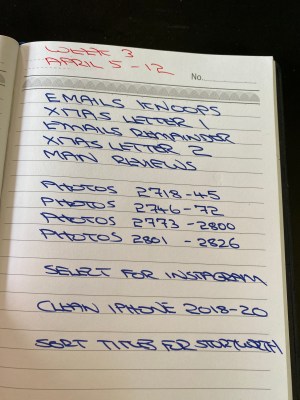 WEEK 3
APRIL 5-12
No.
EMAILS KNOOPS
XMAS LETTER 1
EMAILS REMAINDER
XMAS LETTER 2
MAN REVIEWS
PHOTOS 2718-45
PHOTOS 2746-72
PHOTOS 2773-2800
PHOTOS 2801-2826
SELECT FOR INSTAGRAM
CLEAN IPHONE 2018-20
SORT TITLES FOR STORYWORTH